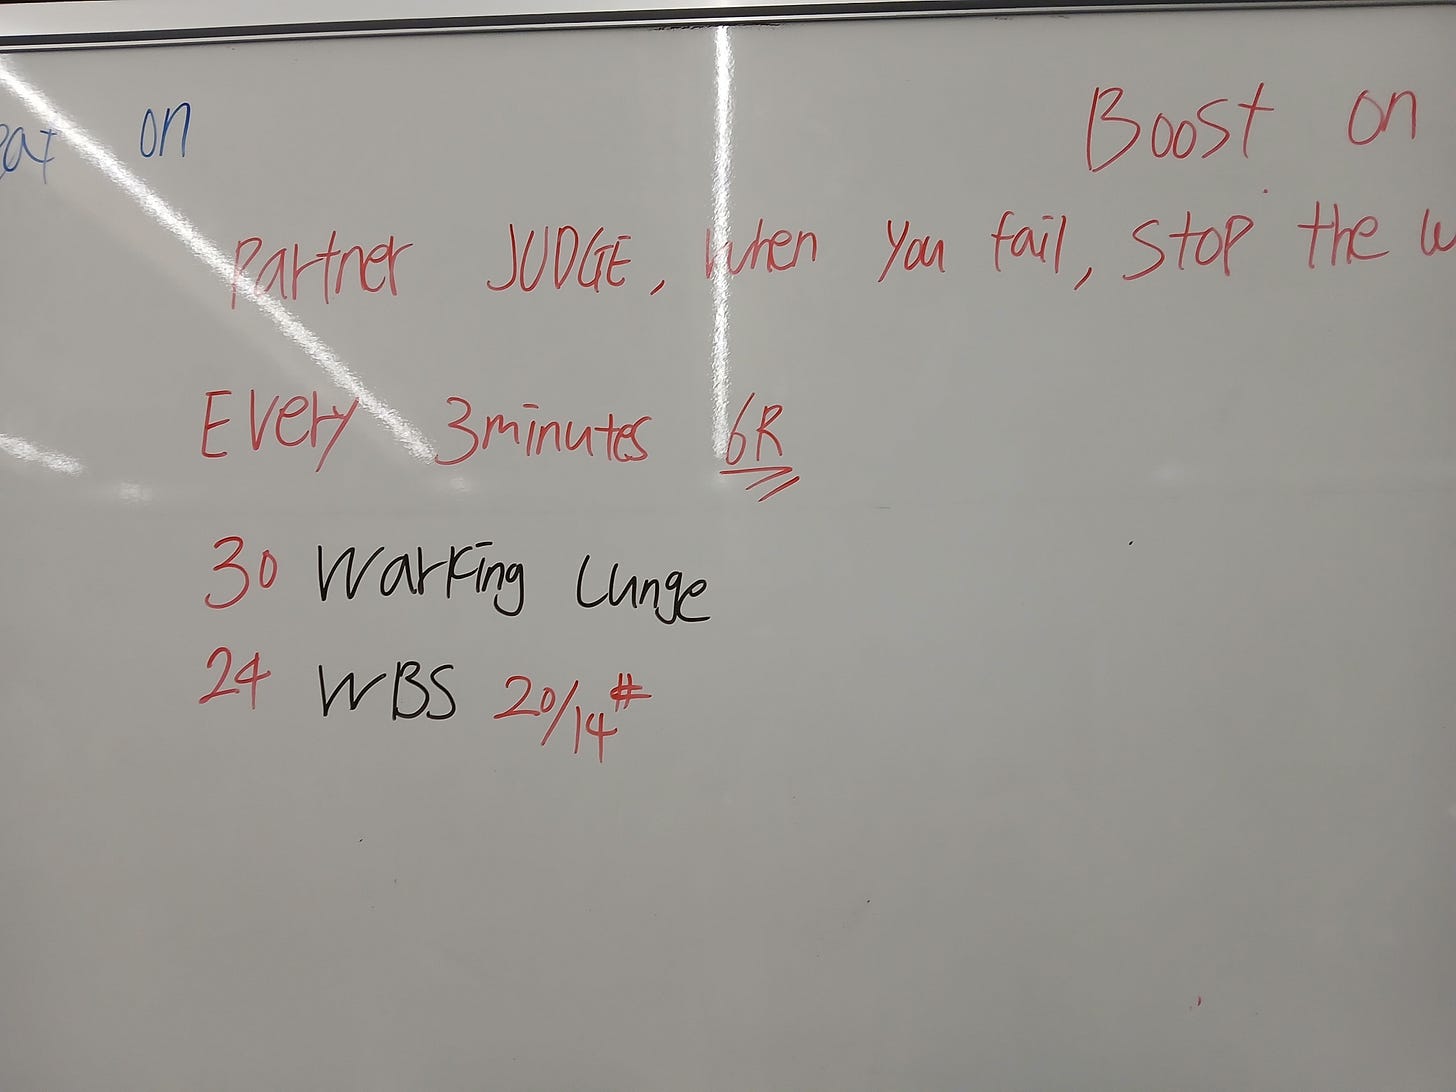 on
Boost on
Partner JUDGE, when you fail, stop the
Every 3minutes 6R
30 Warking Lunge
24 WBS 20/14#